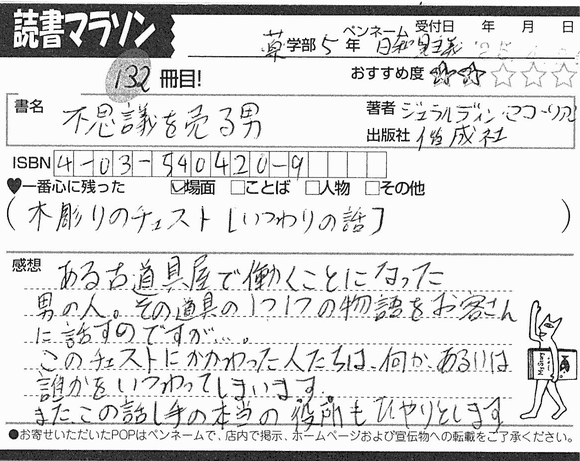 読書マラソン
ペンネーム 受付日 年 月 日
薬 学部 5 年 日和見主義
132 冊目!
おすすめ度 ★★☆☆☆
書名 不思議を売る男
著者 ジェラルディン・マコーリアン
出版社 偕成社
ISBN 4-03-540420-9
♥一番心に残った ☑場面 □ことば □人物 □その他
(木彫りのチェスト[いつわりの話])
感想 ある古道具屋で働くことになった
男の人。その道具の1つ1つの物語をお客さん
に話すのですが…。
このチェストにかかわった人たちは、何か、あるいは
誰かをいつわってしまいます。
また、この話し手の本当の役所もひやりとします
Mystery
●お寄せいただいたPOPはペンネームで、店内で掲示、ホームページおよび宣伝物への転載をご了承ください。